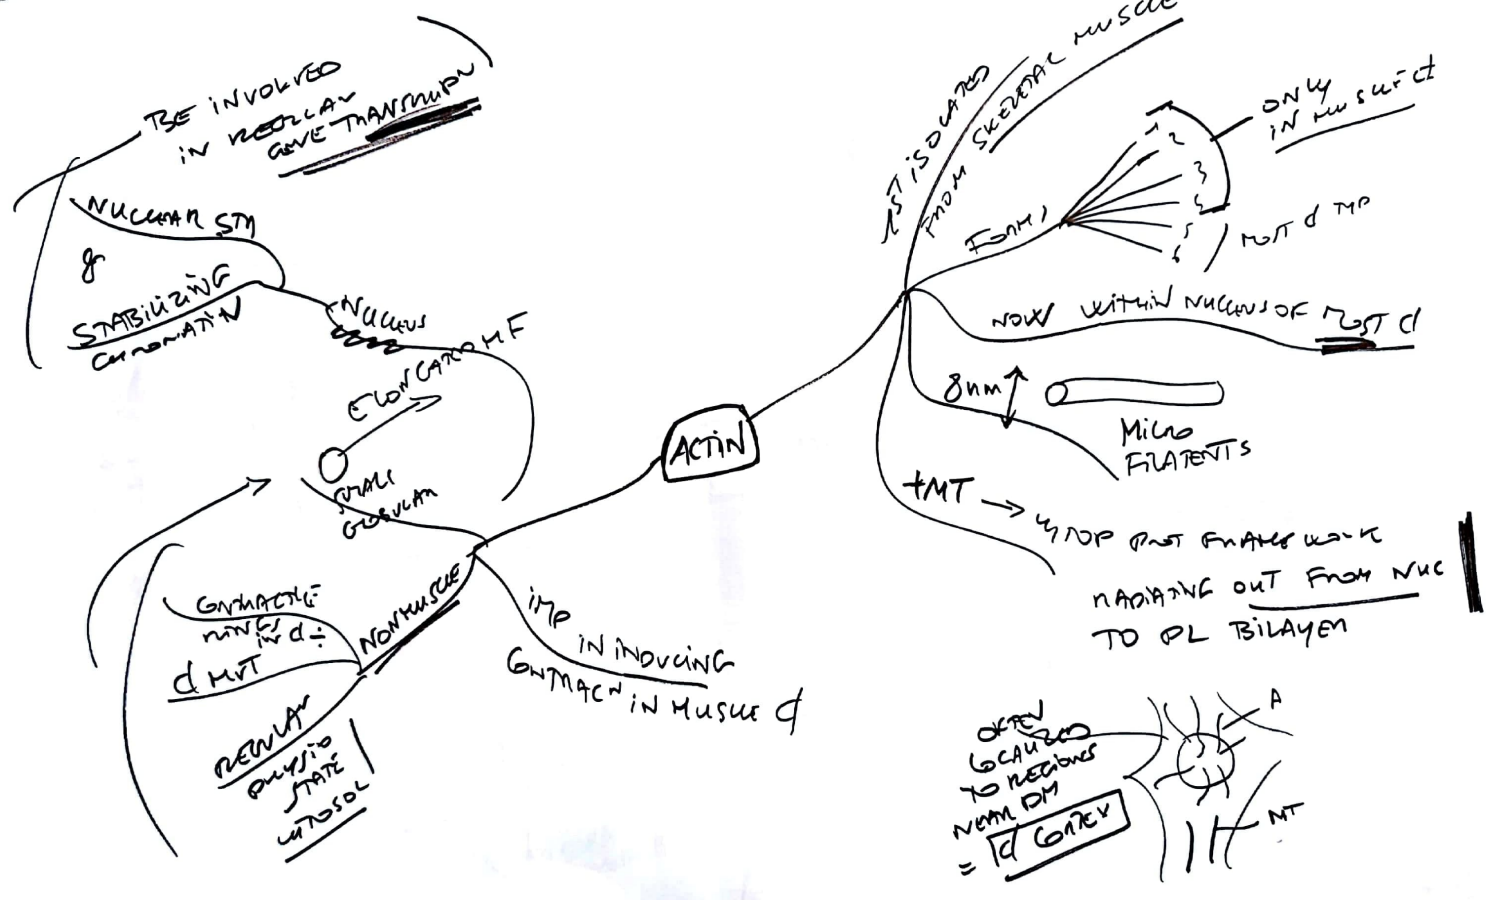 BE INVOLVED
IN REGULAN
GENE TRANSCRIPN
NUCLEAR STR
&
STABILIZING
CHROMATIN
NUCLEUS
ELONGATION MF
SMALL
GLOBULAR
ACTIN
NONMUSCLE
CONTRACTILE
RINGS
IN d ÷
d MVT
REGULAN
PHYSIO
STATE
CYTOSOL
IMP
IN INDUCING
CONTRACN IN MUSCLE d
1ST ISOLATED
FROM SKELETAL MUSCLE
FORMS
1
2
3
4
5
6
ONLY
IN MUSCLE d
MOST d TYP
NOW WITHIN NUCLEUS OF MOST d
8nm
MICRO
FILAMENTS
+MT →
CYTOP PROT FRAMEWORK
RADIATING OUT FROM NUC
TO PL BILAYER
OFTEN
LOCALIZED
TO REGIONS
NEAR PM
= d CORTEX
A
MT